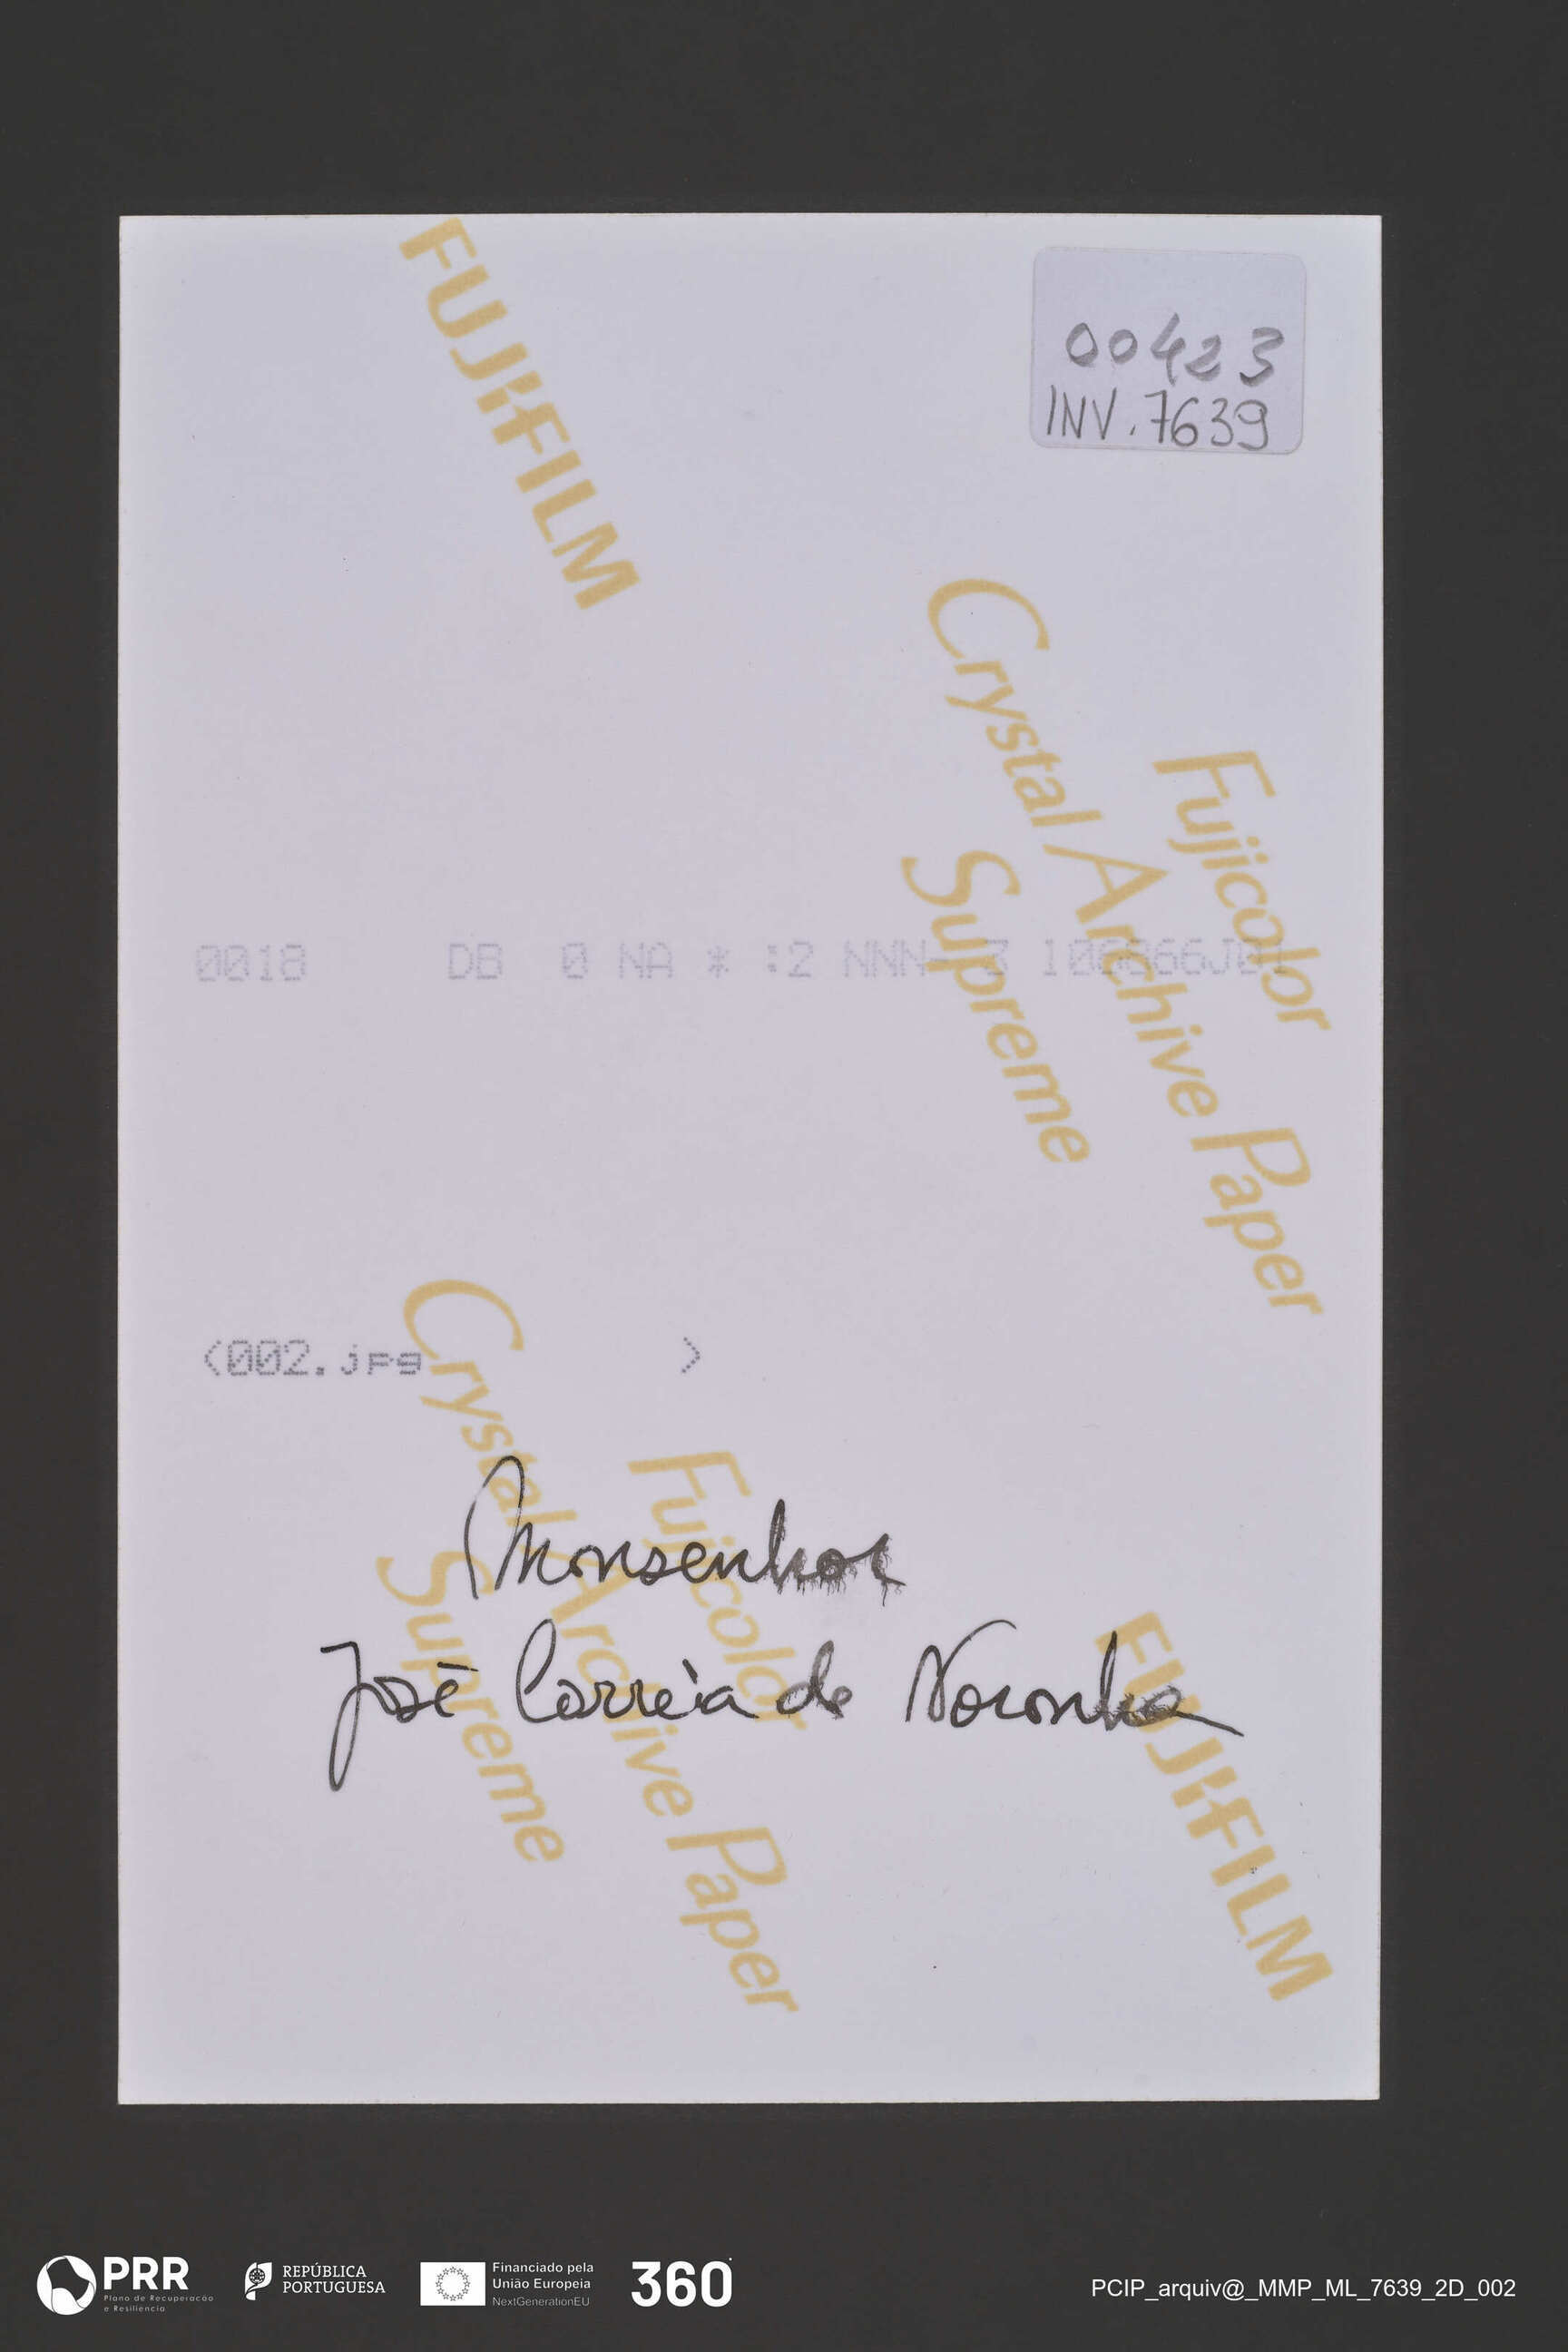 FUJIFILM
00423
INV. 7639
Fujicolor
Crystal Archive Paper
Supreme
0018 DB 0 NA * :2 NNN
<002.jpg >
Fujicolor
Crystal Archive Paper
Supreme
Monsenhor
José Corrèia de Noronha
FUJIFILM
PRR
Plano de Recuperação
e Resiliência
REPÚBLICA
PORTUGUESA
Financiado pela
União Europeia
NextGenerationEU
360
PCIP_arquiv@_MMP_ML_7639_2D_002